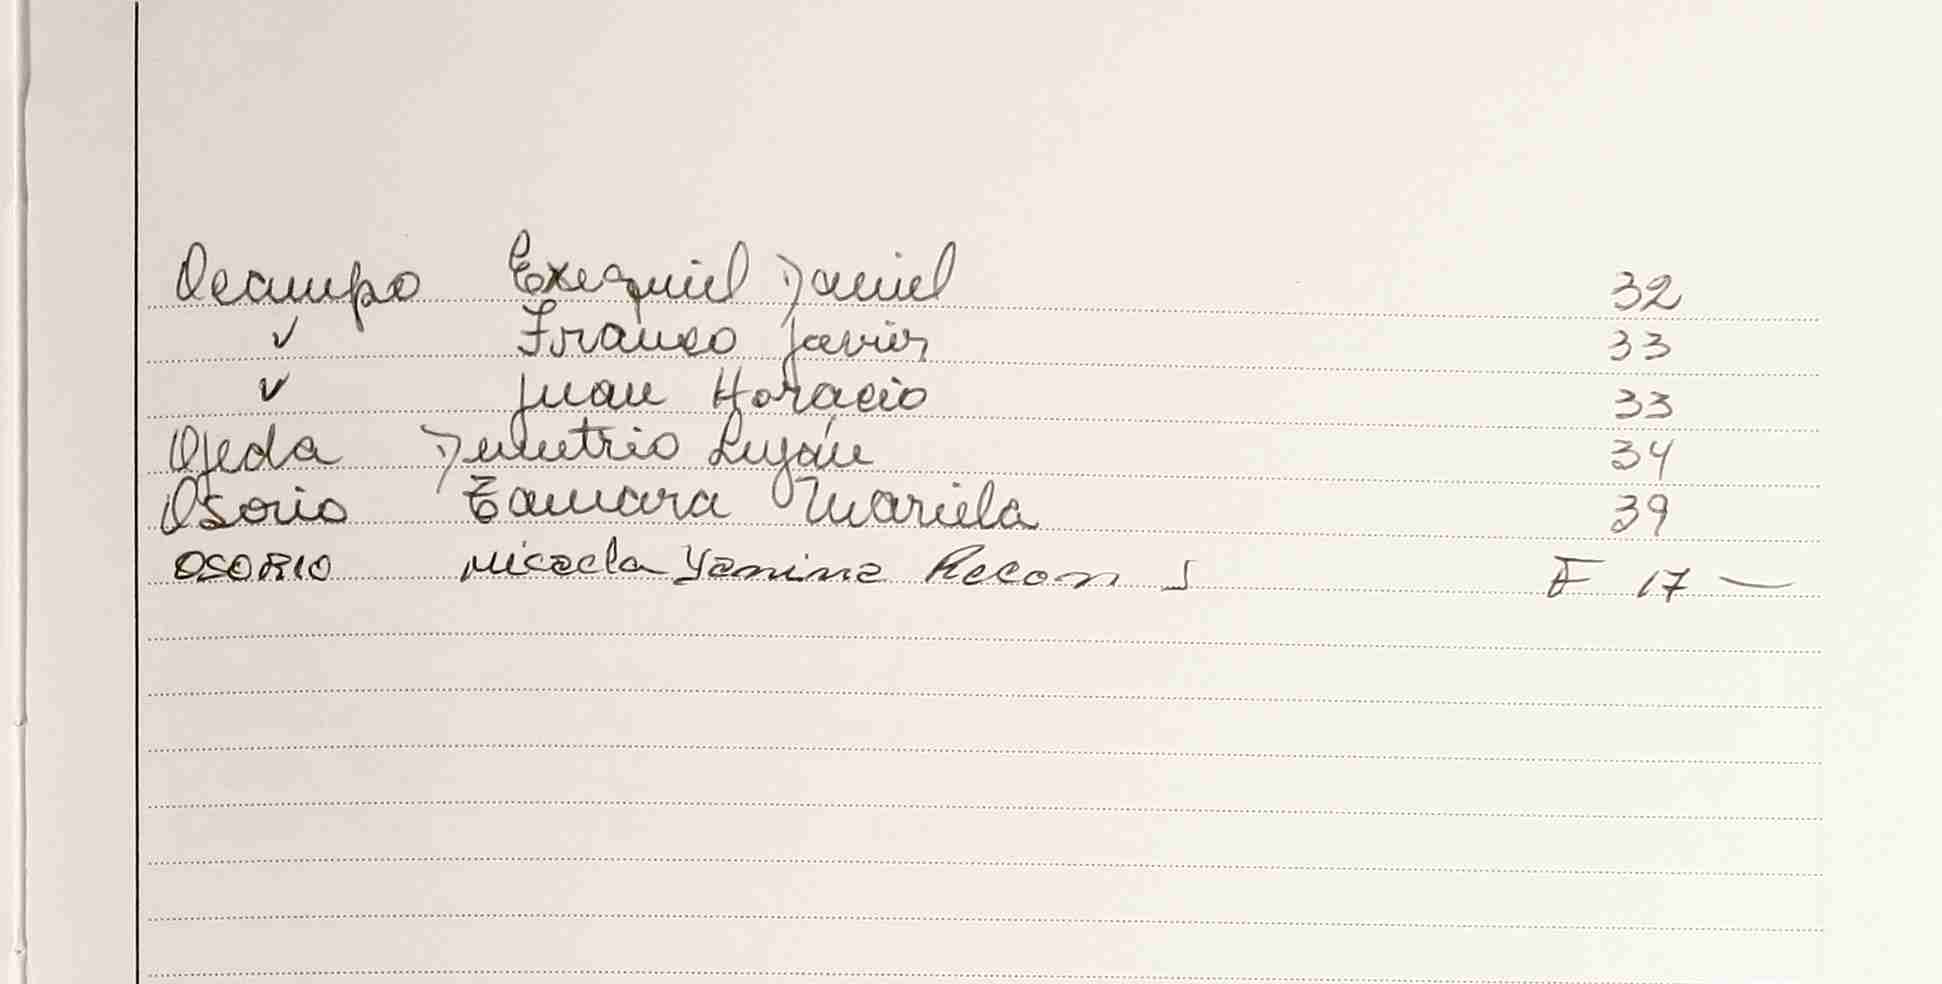 Ocampo Exequiel Daniel 32
✓ Franco Javier 33
✓ Juan Horacio 33
Ojeda Demetrio Luján 34
Osorio Tamara Mariela 39
OSORIO Micaela Yanina Recon F 17 —